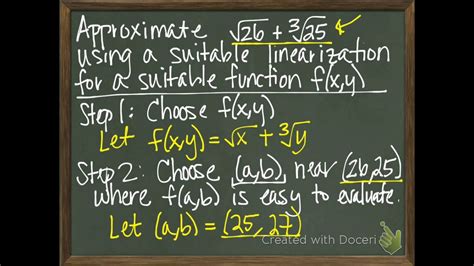 Approximate √26 + ∛25
using a suitable linearization
for a suitable function f(x,y)
Step 1: Choose f(x,y)
Let f(x,y) = √x + ∛y
Step 2: Choose (a,b), near (26,25)
where f(a,b) is easy to evaluate.
Let (a,b) = (25, 27)
Created with Doceri